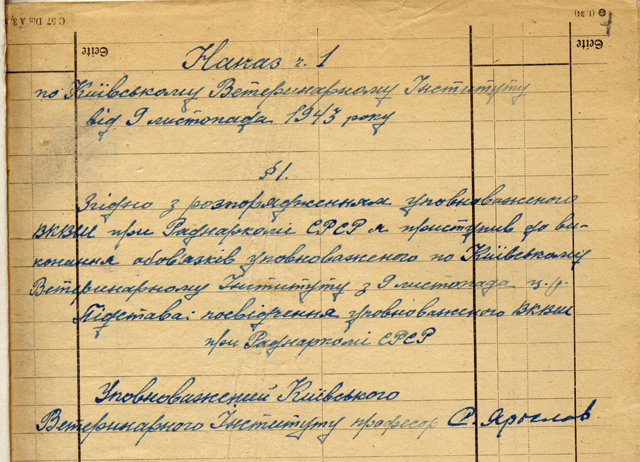 C 57 Din A 3/
(1. 34)
Seite
Seite
Наказ ч. 1
по Київському Ветеринарному Інституту
від 9 листопада 1943 року
§ 1.
Згідно з розпорядженням уповноваженого
ВКВШ при Раднаркомі СРСР я приступив до ви-
конання обов'язків уповноваженого по Київському
Ветеринарному Інституту з 9 листопада ц.р.
Підстава: посвідчення уповноваженого ВКВШ
при Раднаркомі СРСР
Уповноважений Київського
Ветеринарного Інституту професор С. Ярослав